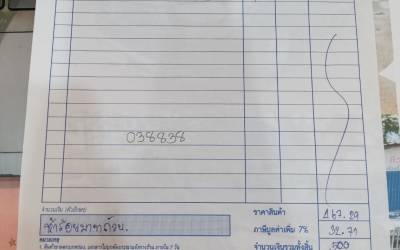 038838
จำนวนเงิน (ตัวอักษร)
ห้าร้อยบาทถ้วน.
ราคาสินค้า 467.29
ภาษีมูลค่าเพิ่ม 7% 32.71
จำนวนเงินรวมทั้งสิ้น 500
หมายเหตุ